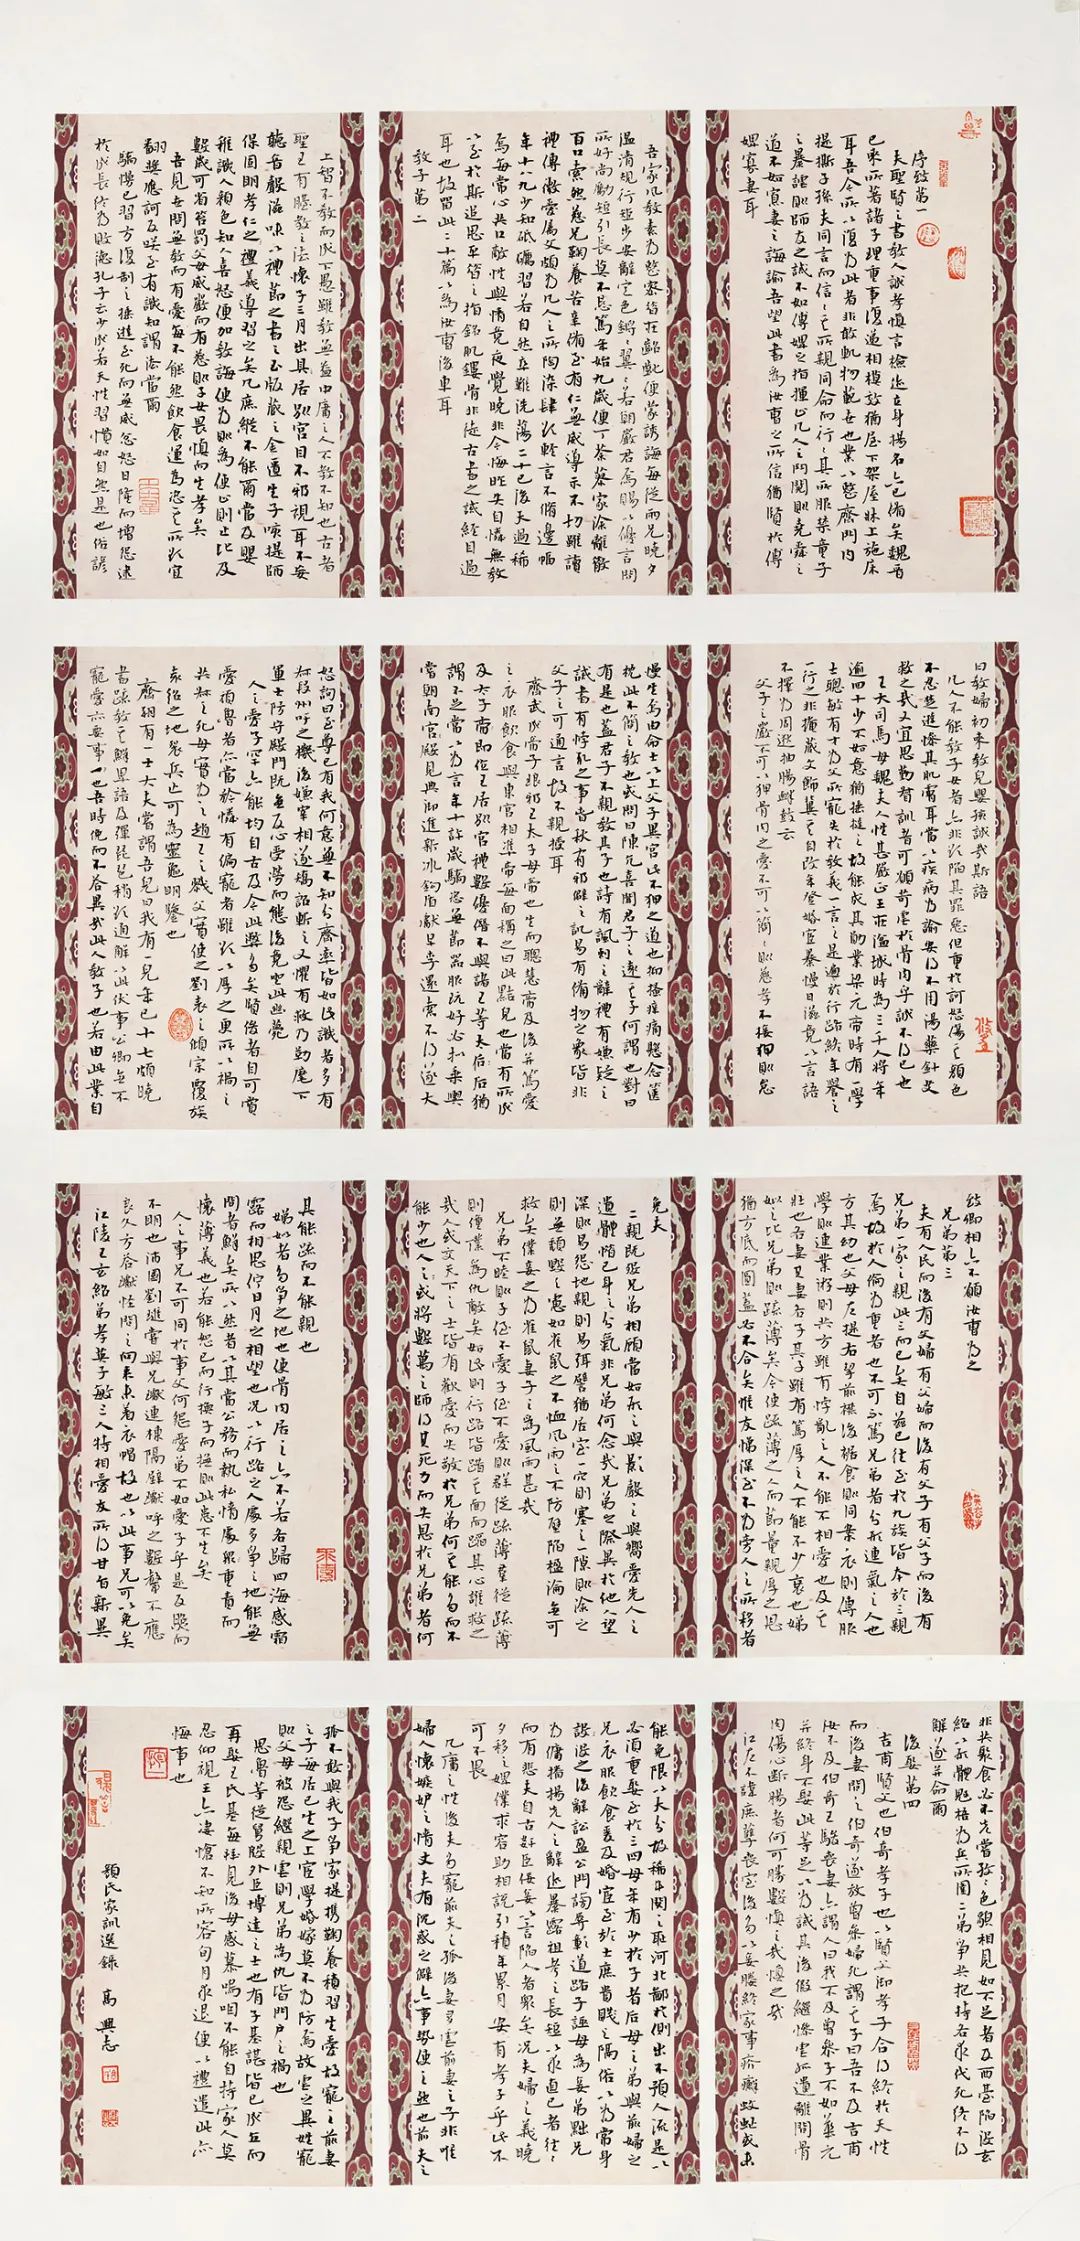 序致第一
夫聖賢之書教人誠孝慎言檢迹立身揚名亦已備矣魏晉
已來所著諸子理重事復遞相模斆猶屋下架屋牀上施床
耳吾今所以復為此者非敢軌物範世也業以整齊門內
提撕子孫夫同言而信々其所親同命而行々其所服禁童子
之暴謔則師友之誡不如傅婢之指揮止凡人之鬥鬩則堯舜之
道不如寡妻之誨諭吾望此書為汝曹之所信猶賢於傅
婢寡妻耳
吾家風教素為整密昔在齠齔便蒙誘誨每從兩兄曉夕
溫凊規行矩步安辭定色鏘々翼々若朝嚴君焉賜以優言問
所好尚勵短引長莫不懇篤年始九歲便丁荼蓼家塗離散
百口索然慈兄鞠養苦辛備至有仁無威導示不切雖讀
禮傳微愛屬文頗為凡人之所陶染肆欲輕言不脩邊幅
年十八九少知砥礪習若自然卒難洗蕩二十已後大過稀
焉每常心共口敵性與情競夜覺曉非今悔昨失自憐無教
以至於斯追思平昔之指銘肌鏤骨非徒古書之誡經目過
耳也故留此二十篇以為汝曹後車耳
教子第二
上智不教而成下愚雖教無益中庸之人不教不知也古者
聖王有胎教之法懷子三月出居別宮目不邪視耳不妄
聽音聲滋味以禮節之書之玉版藏之金匱生子咳提師
保固明孝仁之禮義導習之矣凡庶縱不能爾當及嬰
稚識人顏色知人喜怒便加教誨使為則為使止則止比及
數歲可省笞罰父母威嚴而有慈則子女畏慎而生孝矣
吾見世間無教而有愛每不能然飲食運為恣其所欲宜
翻獎應訶反咲至有識知謂法當爾
驕慢已習方復制之捶撻至死而無威忿怒日隆而增怨逮
於成長終為敗德孔子云少成若天性習慣如自然是也俗諺
曰教婦初來教兒嬰孩誠哉斯語
凡人不能教子女者亦非欲陷其罪惡但重於訶怒傷其顏色
不忍楚撻慘其肌膚耳當以疾病為諭安得不用湯藥針艾
救之哉又宜思勤督訓者可願苛虐於骨肉乎誠不得已也
王大司馬母魏夫人性甚嚴正王在湓城時為三千人將年
逾四十少不如意猶捶撻之故能成其勳業梁元帝時有一學
士聰敏有才為父所寵失於教義一言之是遍於行路終年譽之
一行之非掩藏文飾冀其自改年登婚宦暴慢日滋竟以言語
不擇為周逖抽腸釁鼓云
父子之嚴不可以狎骨肉之愛不可以簡々則慈孝不接狎則怠
慢生焉由命士以上父子異宮此不狎之道也抑搔癢痛懸衾篋
枕此不簡之教也或問曰陳亢喜聞君子之遠其子何謂也對曰
有是也蓋君子不親教其子也詩有諷刺之辭禮有嫌疑之
誡書有悖亂之事春秋有邪僻之譏易有備物之象皆非
父子之可通言故不親授耳
齊武成帝子琅邪王太子母弟也生而聰慧帝及後并篤愛
之衣服飲食與東宮相準帝每面稱之曰此黠兒也當有所成
及太子即位王居別宮禮數優僭不與諸王等太后猶
謂不足常以為言年十許歲驕恣無節器服玩好必擬乘輿
常朝南殿見典御進新冰鉤盾獻早李還索不得遂大
怒詢曰至尊已有我何意無不知分齊率皆如此識者多有
叔段州吁之譏後嫌宰相遂矯詔斬之又懼有救乃勒麾下
軍士防守殿門既無反心受勞而罷後竟坐此幽薨
人之愛子罕亦能均自古及今此弊多矣賢俊者自可賞
愛頑魯者亦當矜憐有偏寵者雖欲以厚之更所以禍之
共叔之死母實為之趙王之戮父實使之劉表之傾宗覆族
袁紹之地裂兵亡可為靈龜明鑒也
齊朝有一士大夫嘗謂吾曰我有一兒年已十七頗曉
書疏教其鮮卑語及彈琵琶稍欲通解以此伏事公卿無不
寵愛亦要事也吾時俛而不答異哉此人教子也若由此業自
致卿相亦不願汝曹為之
兄弟第三
夫有人民而後有夫婦有夫婦而後有父子有父子而後有
兄弟一家之親此三而已矣自茲已往至於九族皆本於三親
焉故於人倫為重者也不可不篤兄弟者分形連氣之人也
方其幼也父母左提右挈前襟後裾食則同案衣則傳服
學則連業游則共方雖有悖亂之人不能不相愛也及其
壯也各妻其妻各子其子雖有篤厚之人不能不少衰也娣
姒之比兄弟則疏薄矣今使疏薄之人而節量親厚之恩
猶方底而圓蓋必不合矣惟友悌深至不為旁人之所移者
免夫
二親既歿兄弟相顧當如形之與影聲之與響愛先人之
遺體惜己身之分氣非兄弟何念哉兄弟之際異於他人望
深則易怨地親則易弭譬猶居室一穴則塞之一隙則塗之
則無頹毀之慮如雀鼠之不恤風雨之不防壁陷楹淪無可
救矣僕妾之為雀鼠妻子之為風雨甚哉
兄弟不睦則子侄不愛子侄不愛則群從疏薄群從疏薄
則僮僕為仇敵矣如此則行路皆踖其面而蹈其心誰救之
哉人或交天下之士皆有歡愛而失敬於兄弟者何其能多而不
能少也人之或將數萬之師得其死力而失恩於兄弟者何
其能疏而不能親也
娣姒者多爭之地也使骨肉居之亦不若各歸四海感霜
露而相思佇日月之相望也況以行路之人處多爭之地能無
間者鮮矣所以然者以其當公務而執私情處重責而
懷薄義也若能恕己而行換子而撫則此患不生矣
人之事兄不可同於事父何怨愛弟不如愛子乎是反照而
不明也沛國劉璡嘗與兄瓛連棟隔壁瓛呼之數聲不應
良久方答瓛怪問之向來未著衣帽故也以此事兄可以免矣
江陵王玄紹弟孝英子敏三人特相愛友所得甘旨新異
非共聚食必不先嘗孜々色貌相見如不足者及西臺陷沒玄
紹以形體魁梧為兵所圍二弟爭共抱持各求代死終不得
解遂并命爾
後娶第四
吉甫賢父也伯奇孝子也以賢父御孝子合得終於天性
而後妻間之伯奇遂放曾參婦死謂其子曰吾不及吉甫
汝不及伯奇王駿喪妻亦謂人曰我不及曾參子不如華元
并終身不娶此等足以為誡其後假繼慘虐孤遺離間骨
肉傷心斷腸者何可勝數慎之哉慎之哉
江左不諱庶孽喪室後多以妾媵終家事疥癬蚊虻或未
能免限以大分故稀鬥鬩之恥河北鄙於側出不預人流是以
必須重娶至於三四母年有少於子者後母之弟與前婦之
兄衣服飲食爰及婚宦至於士庶貴賤之隔俗以為常身
沒之後辭訟盈公門謗辱彰道路子誣母為妾弟黜兄
為傭播揚先人之辭迹暴露祖考之長短以求直己者往々
而有悲夫自古奸臣佞妾以言陷人者眾矣況夫婦之義曉
夕移之婢僕求容助相說引積年累月安有孝子乎此不
可不畏
凡庸之性後夫多寵前夫之孤後妻多虐前妻之子非唯
婦人懷嫉妒之情丈夫有沉惑之僻亦事勢使之然也前夫之
孤不敢與我子爭家提攜鞠養積習生愛故寵之前妻
之子每居己生之上宦學婚嫁莫不為防焉故虐之異姓寵
則父母被怨繼親虐則兄弟為仇皆門戶之禍也
思魯等從舅殷外臣博達之士也有子基諶皆已成立而
再娶王氏基每拜見後母感慕嗚咽不能自持家人莫
忍仰視王亦淒愴不知所容旬月求退便以禮遣此亦
悔事也
顏氏家訓選錄 高興志